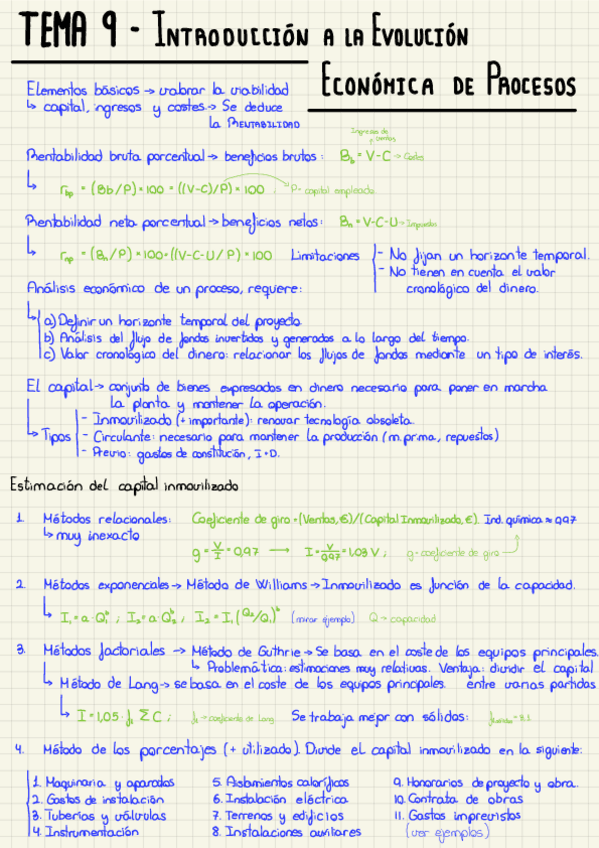 TEMA 9 - INTRODUCCIÓN A LA EVOLUCIÓN
ECONÓMICA DE PROCESOS
Elementos básicos → valorar la viabilidad
↳ capital, ingresos y costes → Se deduce
la RENTABILIDAD
Ingresos de
ventas
Rentabilidad bruta porcentual → beneficios brutos: Bb = V-C → Costes
↳ rbp = (Bb/P) × 100 = ((V-C)/P) × 100; P= capital empleado
Rentabilidad neta porcentual → beneficios netos: Bn = V-C-U → Impuestos
↳ rnp = (Bn/P) × 100 = ((V-C-U/P) × 100 Limitaciones - No fijan un horizonte temporal.
- No tienen en cuenta el valor
cronológico del dinero.
Análisis económico de un proceso, requiere:
↳ a) Definir un horizonte temporal del proyecto
b) Análisis del flujo de fondos invertidos y generados a lo largo del tiempo.
c) Valor cronológico del dinero: relacionar los flujos de fondos mediante un tipo de interés.
El capital → conjunto de bienes expresados en dinero necesario para poner en marcha
la planta y mantener la operación.
- Inmovilizado (+ importante): renovar tecnología obsoleta.
↳ Tipos - Circulante: necesario para mantener la producción (m.prima, repuestos)
- Previo: gastos de constitución, I+D.
Estimación del capital inmovilizado
1. Métodos relacionales: Coeficiente de giro = (Ventas, €)/(Capital Inmovilizado, €). Ind. química ≈ 0,97
↳ muy inexacto
g = V/I = 0,97 → I = V/0,97 = 1,03 V; g = coeficiente de giro
2. Métodos exponenciales → Método de Williams → Inmovilizado es función de la capacidad.
↳ I₁ = a · Q₁ᵇ ; I₂ = a · Q₂ᵇ ; I₂ = I₁ (Q₂/Q₁)ᵇ (mirar ejemplo) Q → capacidad
3. Métodos factoriales → Método de Guthrie → Se basa en el coste de los equipos principales.
↳ Problemática: estimaciones muy relativas. Ventaja: dividir el capital
↳ Método de Lang → se basa en el coste de los equipos principales. entre varias partidas
↳ I = 1,05 · fL ΣC; fL → coeficiente de Lang Se trabaja mejor con sólidos: = 3.1
4. Método de los porcentajes (+ utilizado). Divide el capital inmovilizado en la siguiente:
1. Maquinaria y aparatos 5. Aislamientos caloríficos 9. Honorarios de proyecto y obra.
2. Gastos de instalación 6. Instalación eléctrica 10. Contrata de obras
3. Tuberías y válvulas 7. Terrenos y edificios 11. Gastos imprevistos
4. Instrumentación 8. Instalaciones auxiliares (ver ejemplos)